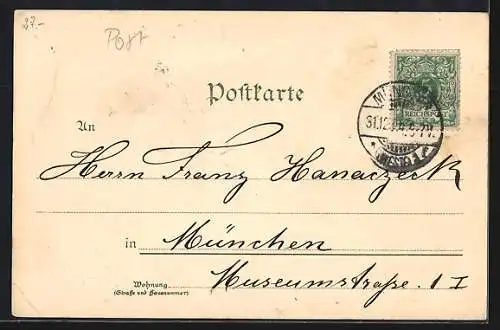 27.-
Post
Postkarte
REICHSPOST
An
Herrn Franz Hanaczeck
in München
Wohnung
(Straße und Hausnummer)
Museumstraße. 1 I